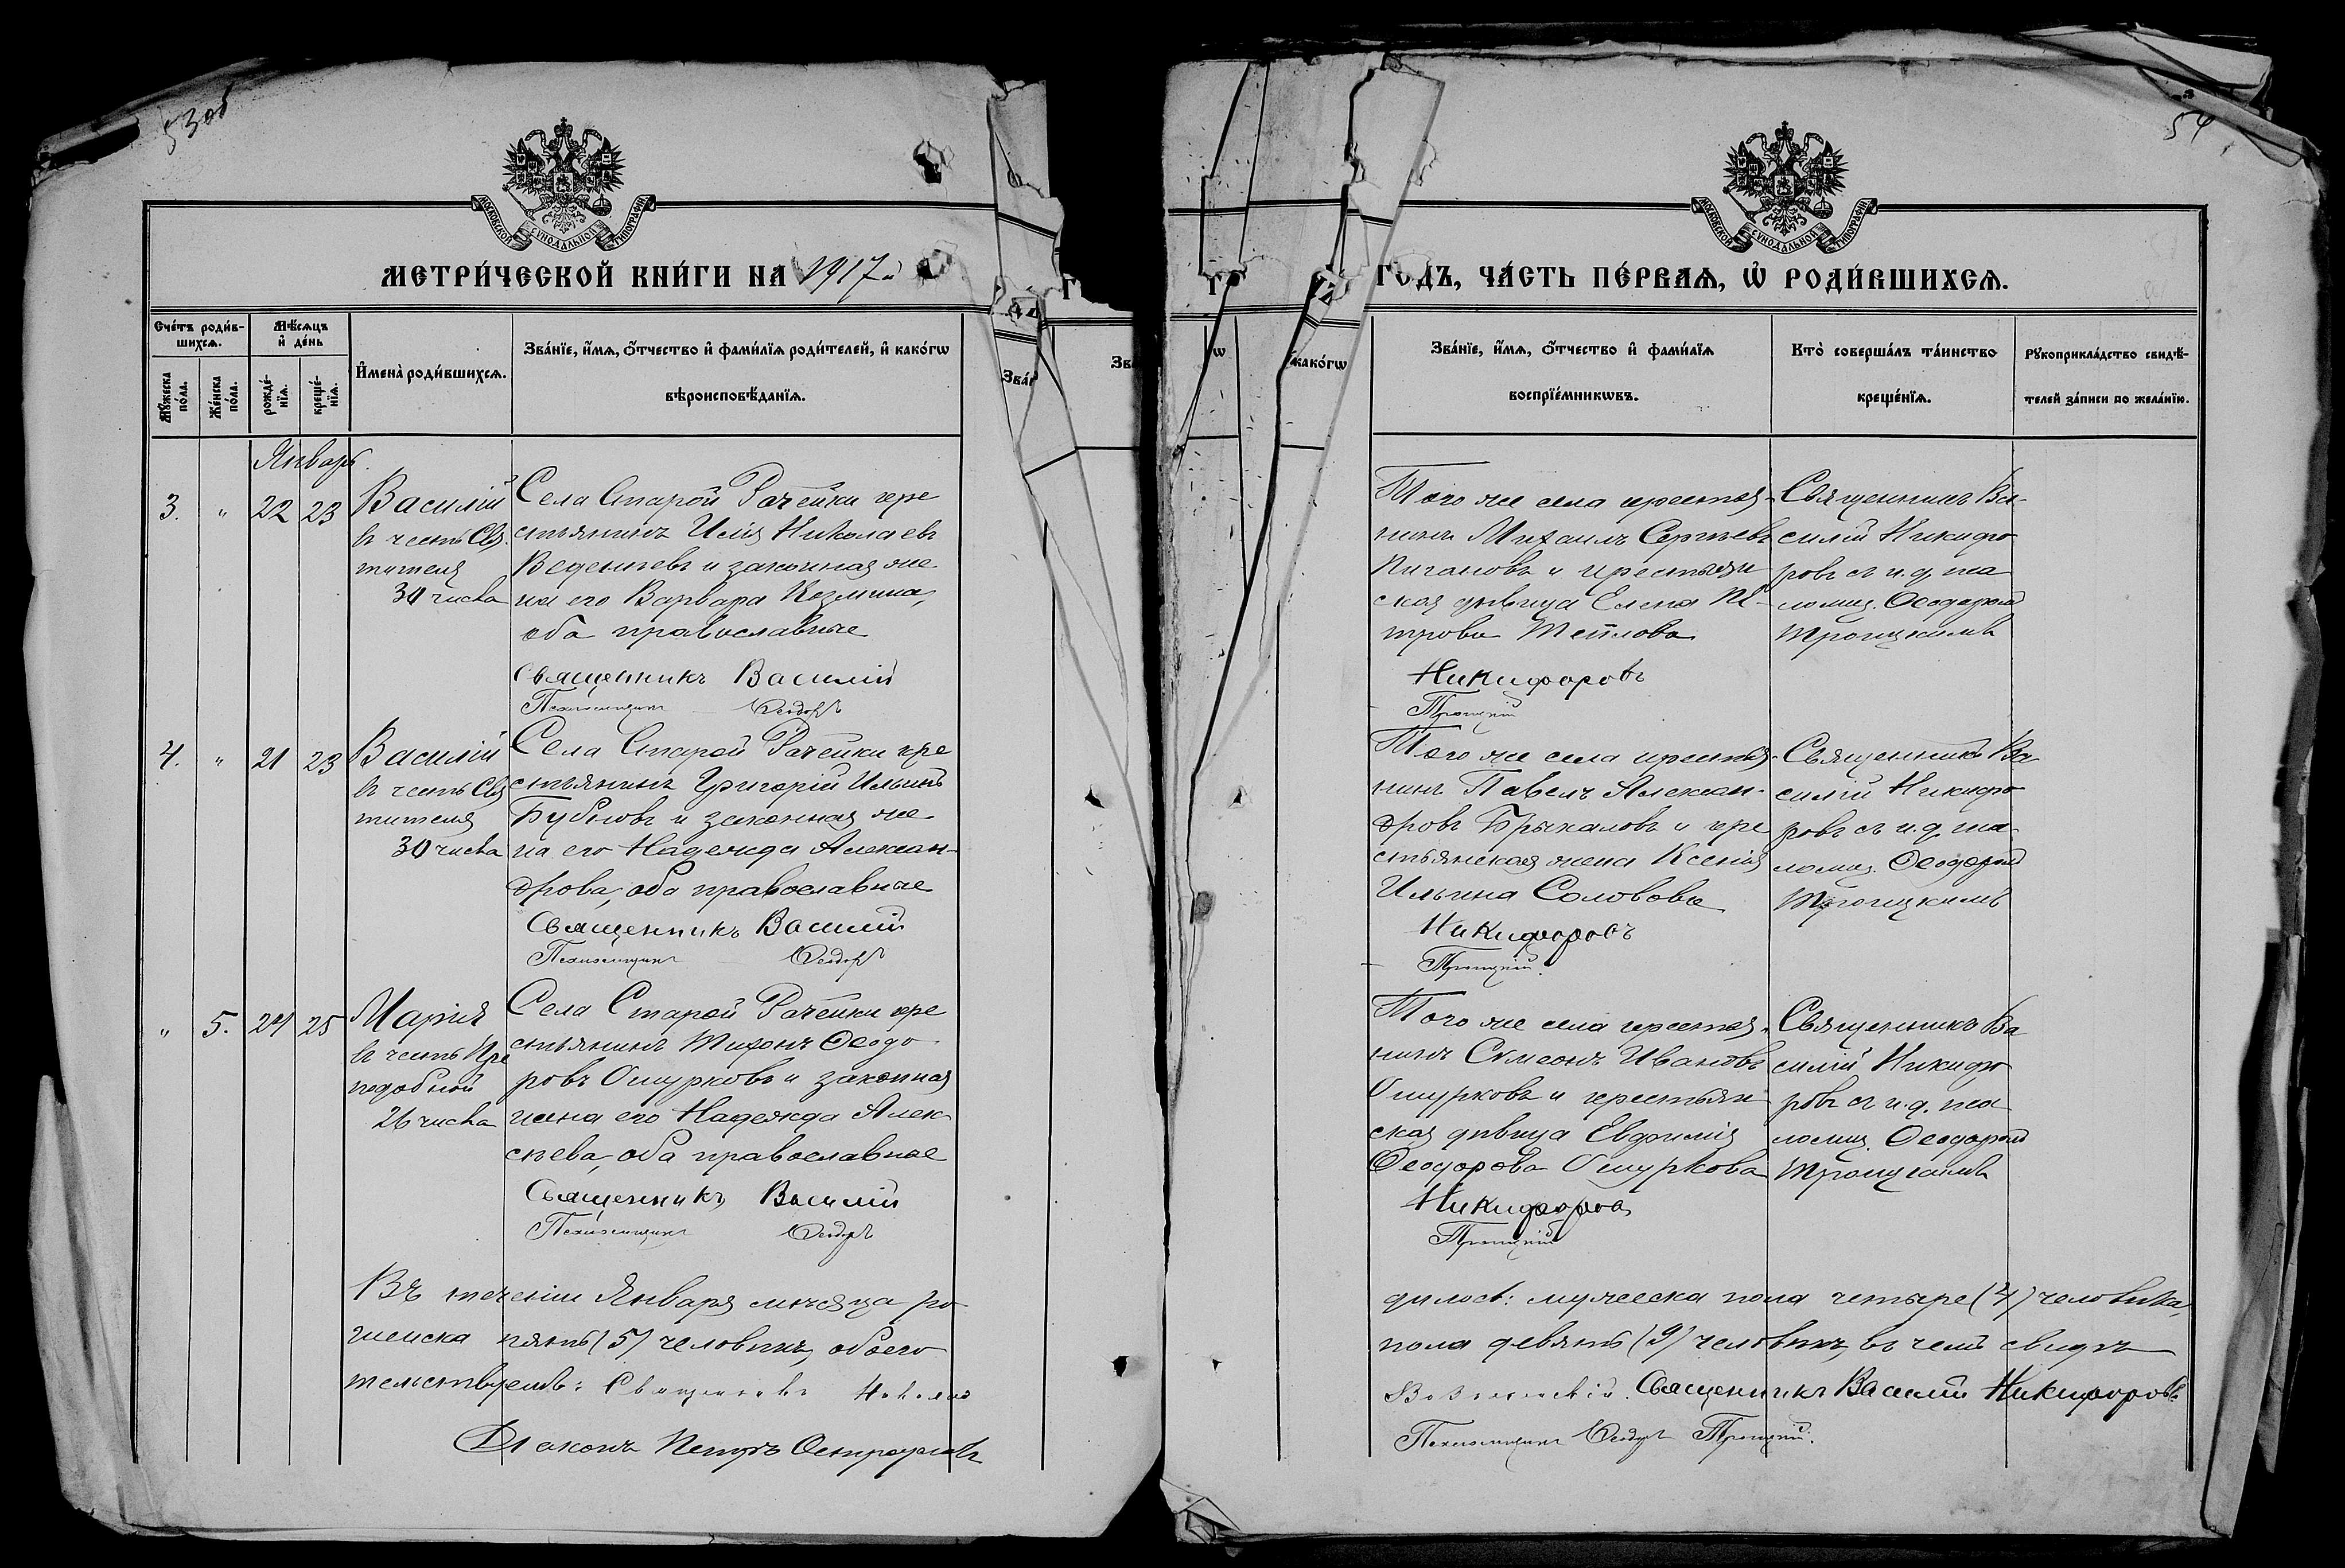 53об
54
МОСКОВСКОЙ СѴНОДАЛЬНОЙ ТИПОГРАФІИ
МОСКОВСКОЙ СѴНОДАЛЬНОЙ ТИПОГРАФІИ
МЕТРИ́ЧЕСКОЙ КНИ́ГИ НА 1917й
ГОДЪ, ЧА́СТЬ ПЕ́РВАѦ, Ѡ҆ РОДИ́ВШИХСѦ.
Сче́тъ роди́в-
шихсѧ.
Мꙋ́жеска по́ла.
Же́нска по́ла.
Мѣ́сѧцъ
и҆ де́нь
рожде́-
нїѧ.
креще́-
нїѧ.
И҆мена̀ роди́вшихсѧ.
Зва́нїе, и҆́мѧ, ѻ҆́тчество и҆ фами́лїѧ роди́телей, и҆ како́гѡ
вѣроисповѣ́данїѧ.
Зва́нїе, и҆́мѧ, ѻ҆́тчество и҆ фами́лїѧ
воспрїе́мникѡвъ.
Кто̀ соверша́лъ та́инство
креще́нїѧ.
Рꙋкоприкла́дство свидѣ́-
телей за́писи по жела́нїю.
Январь.
3. „ 22 23
Василій
въ честь Свя
тителя
30 числа
Села Старой Рачейки кре
стьянинъ Илія Николаевъ
Веденѣевъ и законная же
на его Варвара Козмина,
оба православные
Священникъ Василій
Псаломщикъ Ѳеодоръ
Того же села крестья-
нинъ Михаилъ Сергѣевъ
Пигановъ и крестьян
ская дѣвица Елена Пе-
трова Теплова
Никифоровъ
Троицкій
Священникъ Ва-
силій Никифо
ровъ съ и.д. пса
ломщ. Ѳеодоромъ
Троицкимъ
4. „ 21 23
Василій
въ честь Свя
тителя
30 числа
Села Старой Рачейки кре
стьянинъ Григорій Ильинъ
Бубновъ и законная же
на его Надежда Алексан-
дрова, оба православные
Священникъ Василій
Псаломщикъ Ѳеодоръ
Того же села крестья-
нинъ Павелъ Алексан-
дровъ Брыкаловъ и кре
стьянская жена Ксенія
Ильина Соловова
Никифоровъ
Троицкій.
Священникъ Ва
силій Никифо
ровъ съ и.д. пса-
ломщ. Ѳеодоромъ
Троицкимъ
„ 5. 24 25
Марія
въ честь Пре
подобной
26 числа
Села Старой Рачейки кре
стьянинъ Тихонъ Ѳеодо-
ровъ Ошурковъ и законная
жена его Надежда Алек-
сѣева, оба православные
Священникъ Василій
Псаломщикъ Ѳеодоръ
Того же села крестья-
нинъ Сѵмеонъ Ивановъ
Ошурковъ и крестьян
ская дѣвица Евфимія
Ѳеодорова Ошуркова
Никифоровъ
Троицкій
Священникъ Ва
силій Никифо
ровъ съ и.д. пса
ломщ. Ѳеодоромъ
Троицкимъ
Въ теченіи Января мѣсяца ро
дилось: мужеска пола четыре (4) человѣка,
женска пять (5) человѣкъ, обоего
пола девять (9) человѣкъ, въ чемъ свидѣ
тельствуемъ: Священникъ Николай
Вознесенскій. Священникъ Василій Никифоровъ.
Діаконъ Петръ
Псаломщикъ Ѳеодоръ Троицкій.